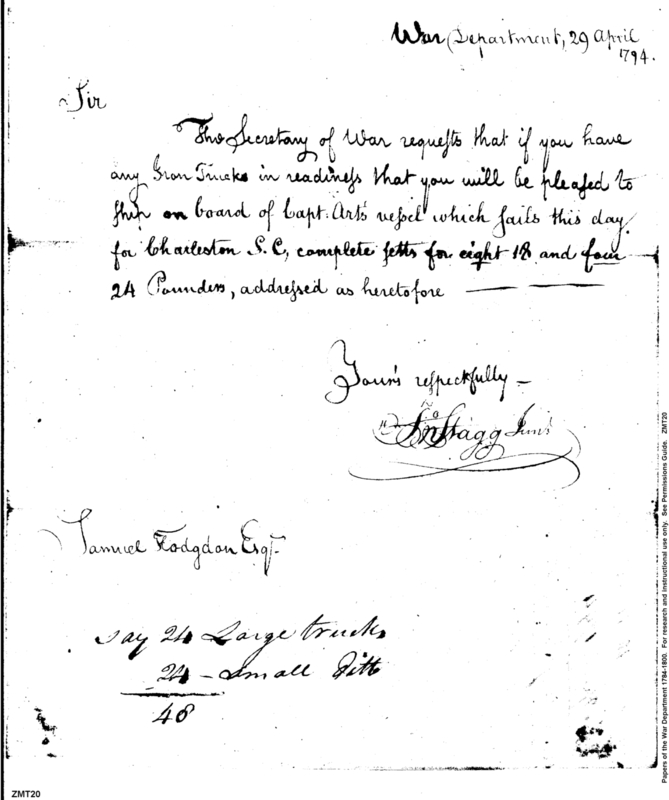 War Department, 29 April
1794.
Sir
The Secretary of War requests that if you have
any Iron Trucks in readiness that you will be pleased to
ship on board of Capt. Art's vessel which sails this day
for Charleston S.C, complete setts for eight 18 and four
24 Pounders, addressed as heretofore
Your's respectfully
Jno Stagg Junr
Samuel Hodgdon Esqr.
say 24 Large trucks
24 - small Ditto
48
ZMT20
Papers of the War Department 1784-1800. For research and instructional use only. See Permissions Guide. ZMT20